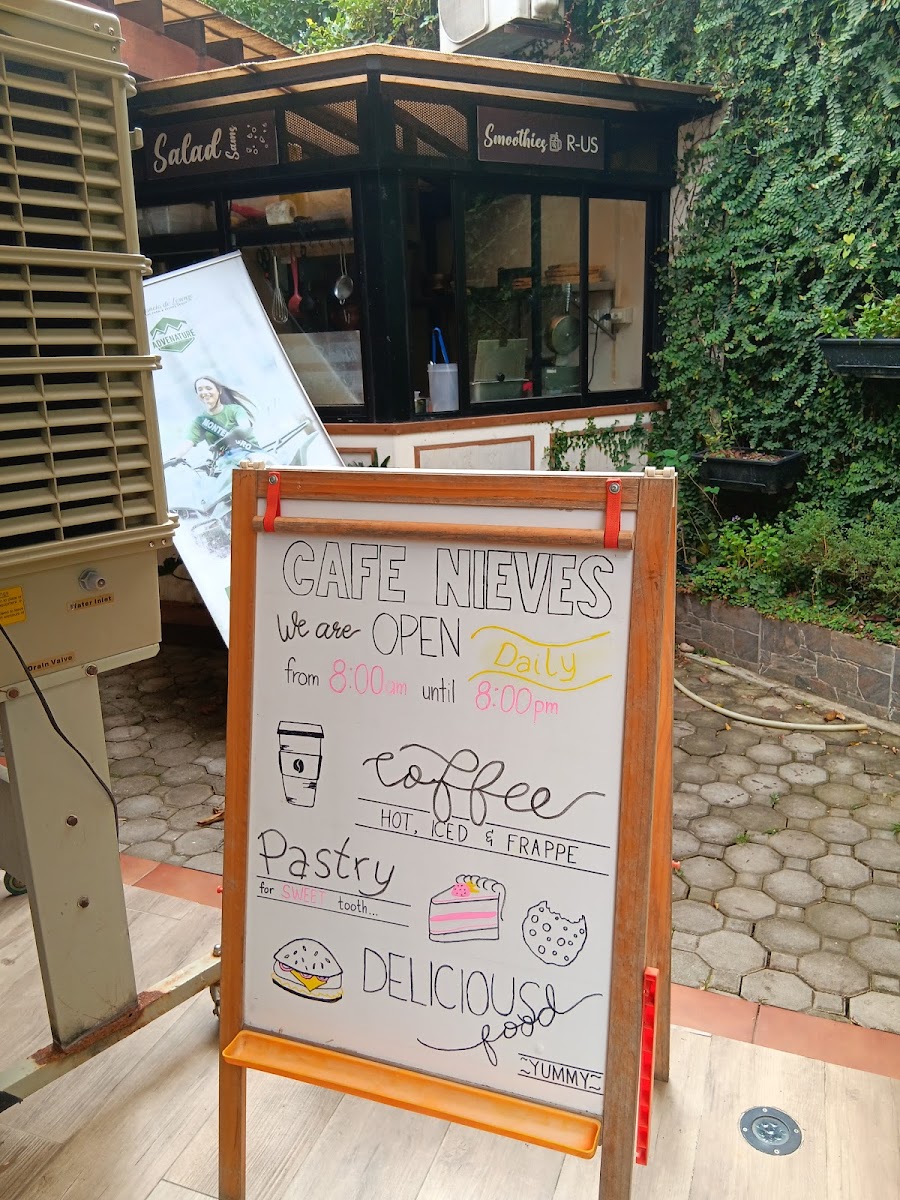 Salad Sam
Smoothies R-US
ADVENATURE
MONTE
Water Inlet
Drain Valve
CAFE NIEVES
We are OPEN Daily
from 8:00am until 8:00pm
coffee
HOT, ICED & FRAPPE
Pastry
for SWEET tooth...
DELICIOUS
food
~YUMMY~